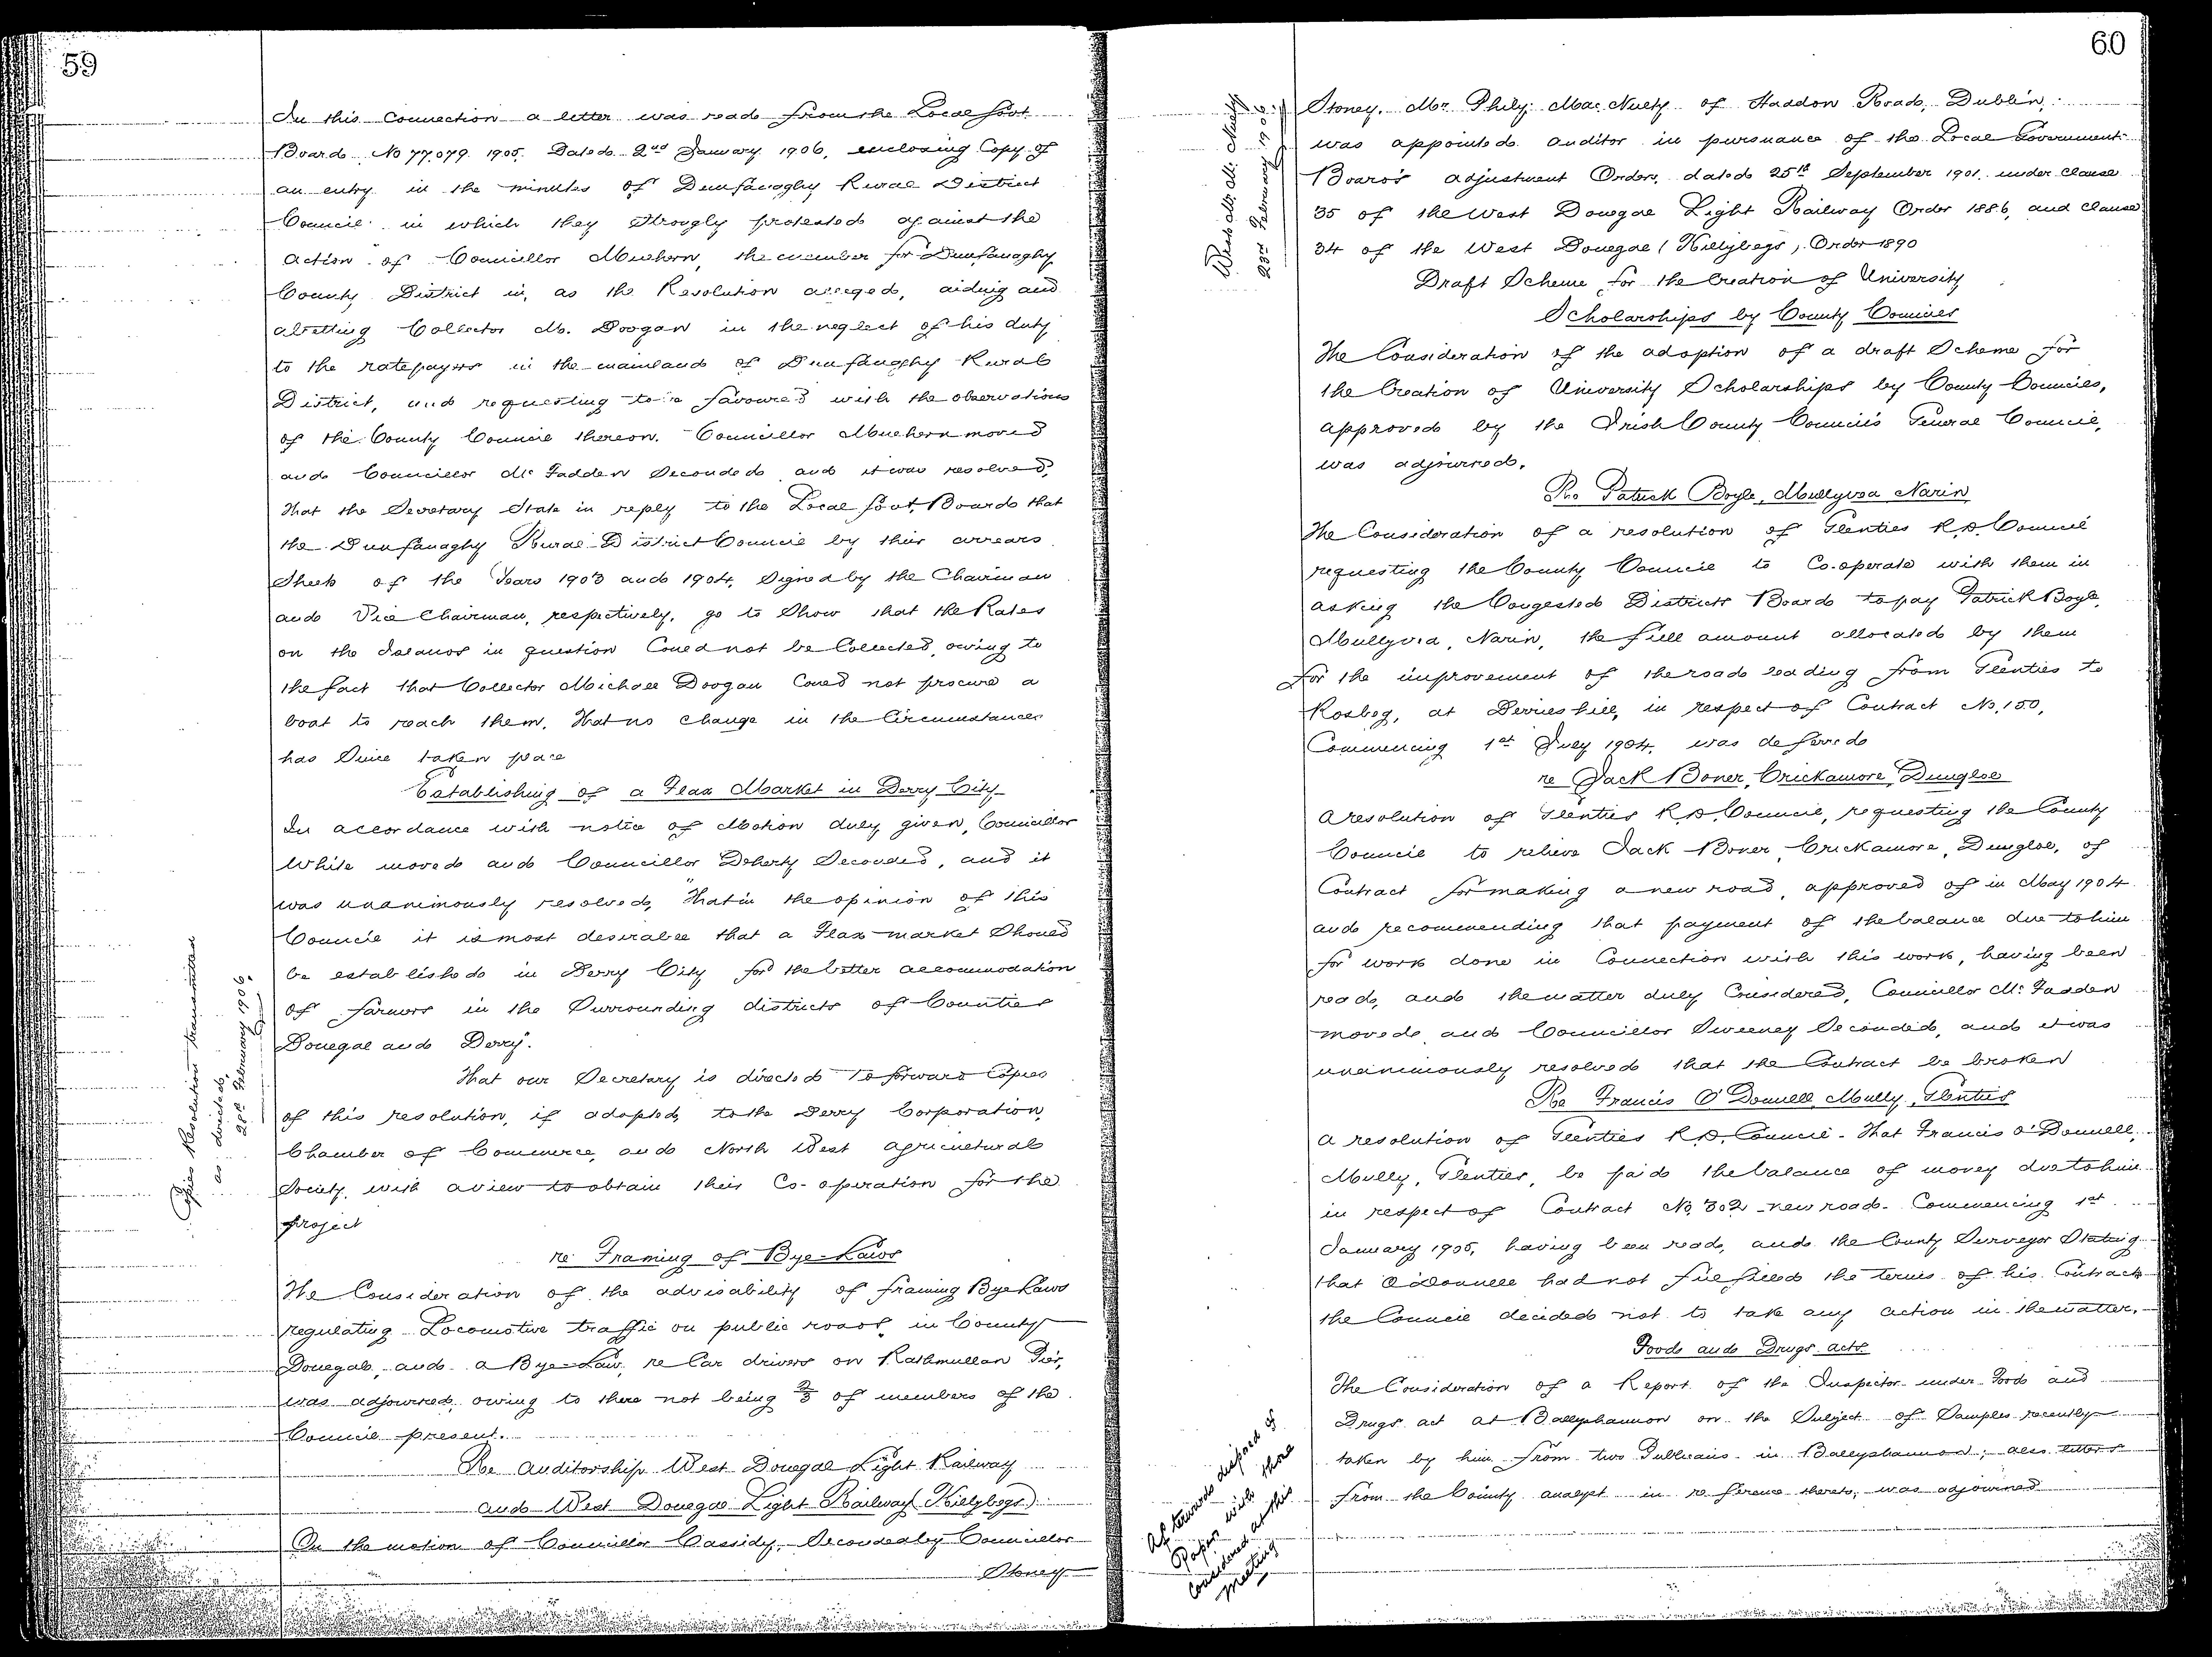 59
In this connection a letter was read from the Local Govt.
Board No 77,079 1905. Dated 2nd January 1906, enclosing Copy of
an entry in the minutes of Dunfanaghy Rural District
Council in which they strongly protested against the
action of Councillor Mulhern, the member for Dunfanaghy
County District in, as the Resolution alleged, aiding and
abetting Collector M. Doogan in the neglect of his duty
to the ratepayers in the mainland of Dunfanaghy Rural
District, and requesting to be favoured with the observations
of the County Council thereon. Councillor Mulhern moved
and Councillor McFadden Seconded and it was resolved,
That the Secretary State in reply to the Local Govt. Board that
the Dunfanaghy Rural District Council by their arrears
Sheets of the Years 1903 and 1904, Signed by the Chairman
and Vice Chairman, respectively, go to Show that the Rates
on the Islands in question Could not be Collected, owing to
the fact that Collector Michael Doogan Could not procure a
boat to reach them. That no change in the Circumstances
has Since taken place
Establishing of a Flax Market in Derry City
In accordance with notice of Motion duly given, Councillor
White moved and Councillor Doherty Seconded, and it
was unanimously resolved, "That in the opinion of this
Council it is most desirable that a Flax market Should
be established in Derry City for the better accommodation
of farmers in the Surrounding districts of Counties
Donegal and Derry".
That our Secretary is directed to forward Copies
of this resolution, if adopted, to the Derry Corporation,
Chamber of Commerce, and North West Agricultural
Society, with a view to obtain their Co-operation for the
project
Copies Resolution transmitted
as directed,
28th February 1906.
re Framing of Bye-Laws
The Consideration of the advisability of framing Bye Laws
regulating Locomotive traffic on public roads in County
Donegal, and a Bye-Law, re Car drivers on Rathmullan Pier,
was adjourned, owing to there not being 2/3 of members of the
Council present.
Re Auditorship West Donegal Light Railway
and West Donegal Light Railway (Killybegs)
On the motion of Councillor Cassidy, Seconded by Councillor
Stoney
60
Stoney. Mr. Philip MacNulty of Haddon Road, Dublin,
was appointed auditor in pursuance of the Local Government
Board's adjustment Order, dated 25th September 1901. under clause
35 of the West Donegal Light Railway Order 1886, and clause
34 of the West Donegal (Killybegs) Order 1890
23rd February 1906
Draft Scheme for the Creation of University
Scholarships by County Councils
The Consideration of the adoption of a draft Scheme for
the Creation of University Scholarships by County Councils,
approved by the Irish County Councils General Council,
was adjourned.
Re Patrick Boyle, Mullyvea Narin
The Consideration of a resolution of Glenties R.D. Council
requesting the County Council to Co-operate with them in
asking the Congested Districts Board to pay Patrick Boyle,
Mullyvea, Narin, the full amount allocated by them
for the improvement of the road leading from Glenties to
Rosbeg, at Derries hill, in respect of Contract No. 150,
Commencing 1st July 1904. was deferred
re Jack Boner, Crickamore, Dungloe
A resolution of Glenties R.D. Council, requesting the County
Council to relieve Jack Boner, Crickamore, Dungloe, of
Contract for making a new road, approved of in May 1904
and recommending that payment of the balance due to him
for work done in Connection with this work, having been
read, and the matter duly Considered, Councillor McFadden
moved, and Councillor Sweeney Seconded, and it was
unanimously resolved that the Contract be broken
Re Francis O'Donnell, Mully, Glenties
A resolution of Glenties R.D. Council - That Francis O'Donnell,
Mully, Glenties, be paid the balance of money due to him
in respect of Contract No. 302 - new road - Commencing 1st
January 1905, having been read, and the County Surveyor Stating
that O'Donnell had not fulfilled the terms of his Contract
the Council decided not to take any action in the matter.
Foods and Drugs acts
The Consideration of a Report of the Inspector under Food and
Drugs act at Ballyshannon on the Subject of Samples recently
taken by him from two Publicans in Ballyshannon; also letters
from the County analyst in reference thereto, was adjourned
Afterwards disposed of
Paper with those
Considered at this
meeting